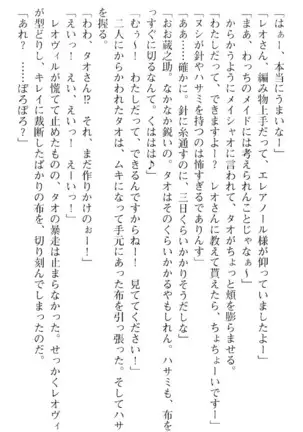 「はぁー、本当にうまいなー」
「レオさん、編み物上手だって、エレアノール様が仰っていましたよー」
「まあ、わっちのメイドには考えられんことじゃなぁ〜」
からかうようにメイシャオに言われて、タオがちょっと頬を膨らませる。
「わたしだって、できますよー？　レオさんに教えて貰えたら、ちょちょーいですー」
「ヌシが針やハサミを持つのは怖すぎるでありんす」
「あぁ……確かに。針に糸通すのに、三日くらいかかりそうだしな」
「おお蔵之助。なかなか鋭いの。タオはそのくらいかかるやもしれん。ハサミも、布を
すっぐに切るなんて。くははは♪」
「むぅ〜！　わたしだって、できるんですからねー！　見ててくださいー！」
二人にからかわれたタオは、ムキになって手元にあった布を引っ張る。そしてハサ
ミを握る。
「わわ、タオさん!?　それ、まだ作りかけのぉー！」
「えいっ！　えい、えいっ！　えーいっー！」
レオヴィルが慌てて止めたものの、タオの暴走は止まらなかった。せっかくレオヴィ
が型どりし、キレイに裁断したばかりの布を、切り刻んでしまったのだ。
「あれ？　……ぼろぼろ？」